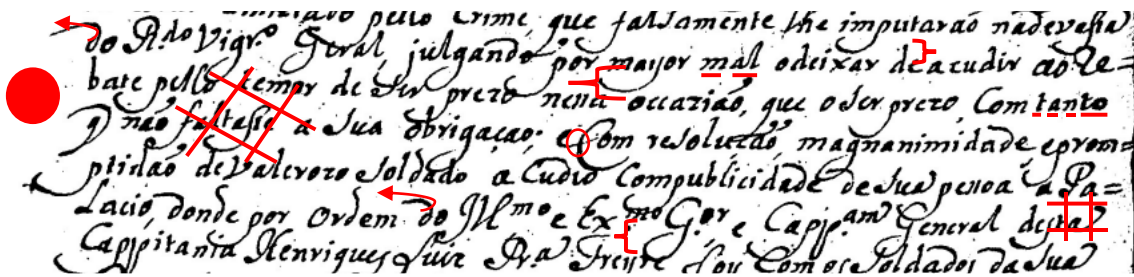 pello Crime, que falsamente lhe imputaraõ nadevasa
do R.do Vigr.o Geral, julgando por mayor mal odeixar deacudir ao Re=
bate pello temor de ser prezo nessa occaziaõ, que oser prezo, Com tanto
q̃ naõ faltase a Sua obrigaçaõ; e Com resoluzaõ, magnanimidade eprom=
ptidaõ deValerozo Soldado aCudio Compublicidade deSua pessoa aPa=
Lacio, donde por Ordem do Ill.mo e Ex.mo G.or e Capp.am General desta
Cappitania Henrique Luis Pr.a Freyre foy Com os Soldados da Sua